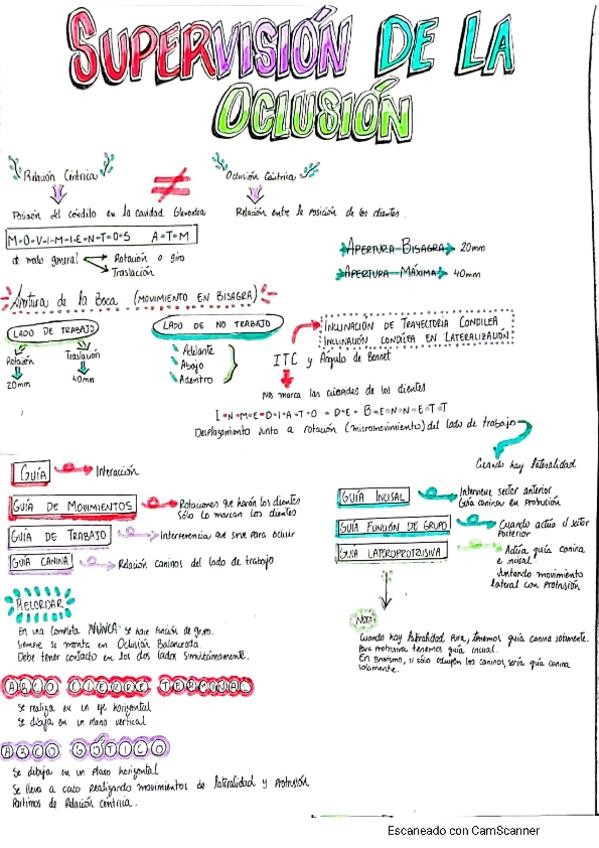 SUPERVISIÓN DE LA
OCLUSIÓN
Relación Céntrica
≠
Oclusión Céntrica
Posición del cóndilo en la cavidad Glenoidea
Relación entre la posición de los dientes.
M-O-V-I-M-I-E-N-T-O-S A-T-M
de modo general
Rotación o giro
Traslación
APERTURA BISAGRA
20mm
APERTURA MÁXIMA
40mm
Apertura de la Boca (MOVIMIENTO EN BISAGRA)
LADO DE TRABAJO
Rotación
20mm
Traslación
40mm
LADO DE NO TRABAJO
Adelante
Abajo
Adentro
ITC y Ángulo de Bennet
INCLINACIÓN DE TRAYECTORIA CONDILEA
INCLINACIÓN CONDÍLEA EN LATERALIZACIÓN
Nos marca las cúspides de los dientes
I-N-M-E-D-I-A-T-O - D-E - B-E-N-N-E-T-T
Desplazamiento junto a rotación (micromovimiento) del lado de trabajo
Cuando hay lateralidad
GUÍA
Interacción
GUÍA DE MOVIMIENTOS
Rotaciones que harán los dientes
Sólo lo marcan los dientes
GUÍA DE TRABAJO
Interferencia que sirve para ocluir
GUÍA CANINA
Relación caninos del lado de trabajo
GUÍA INCISAL
Interviene sector anterior
Guía canina en protrusión
GUÍA FUNCIÓN DE GRUPO
Cuando actúa el sector
Posterior
GUÍA LATEROPROTRUSIVA
Actúa guía canina
e incisal
Juntando movimiento
lateral con protrusión
NOTA
Cuando hay lateralidad pura, tenemos guía canina solamente.
Para protrusiva tenemos guía incisal.
En Bruxismo, si sólo ocluyen los caninos sería guía canina
solamente.
RECORDAR
En una completa NUNCA se hace función de grupo.
Siempre se monta en Oclusión Balanceada
Debe tener contacto en los dos lados simultáneamente.
ARCO CIERRE TERMINAL
Se realiza en un eje horizontal
Se dibuja en un plano vertical
ARCO GÓTICO
Se dibuja en un plano horizontal
Se lleva a cabo realizando movimientos de lateralidad y Protrusión
Partimos de Relación céntrica.
Escaneado con CamScanner